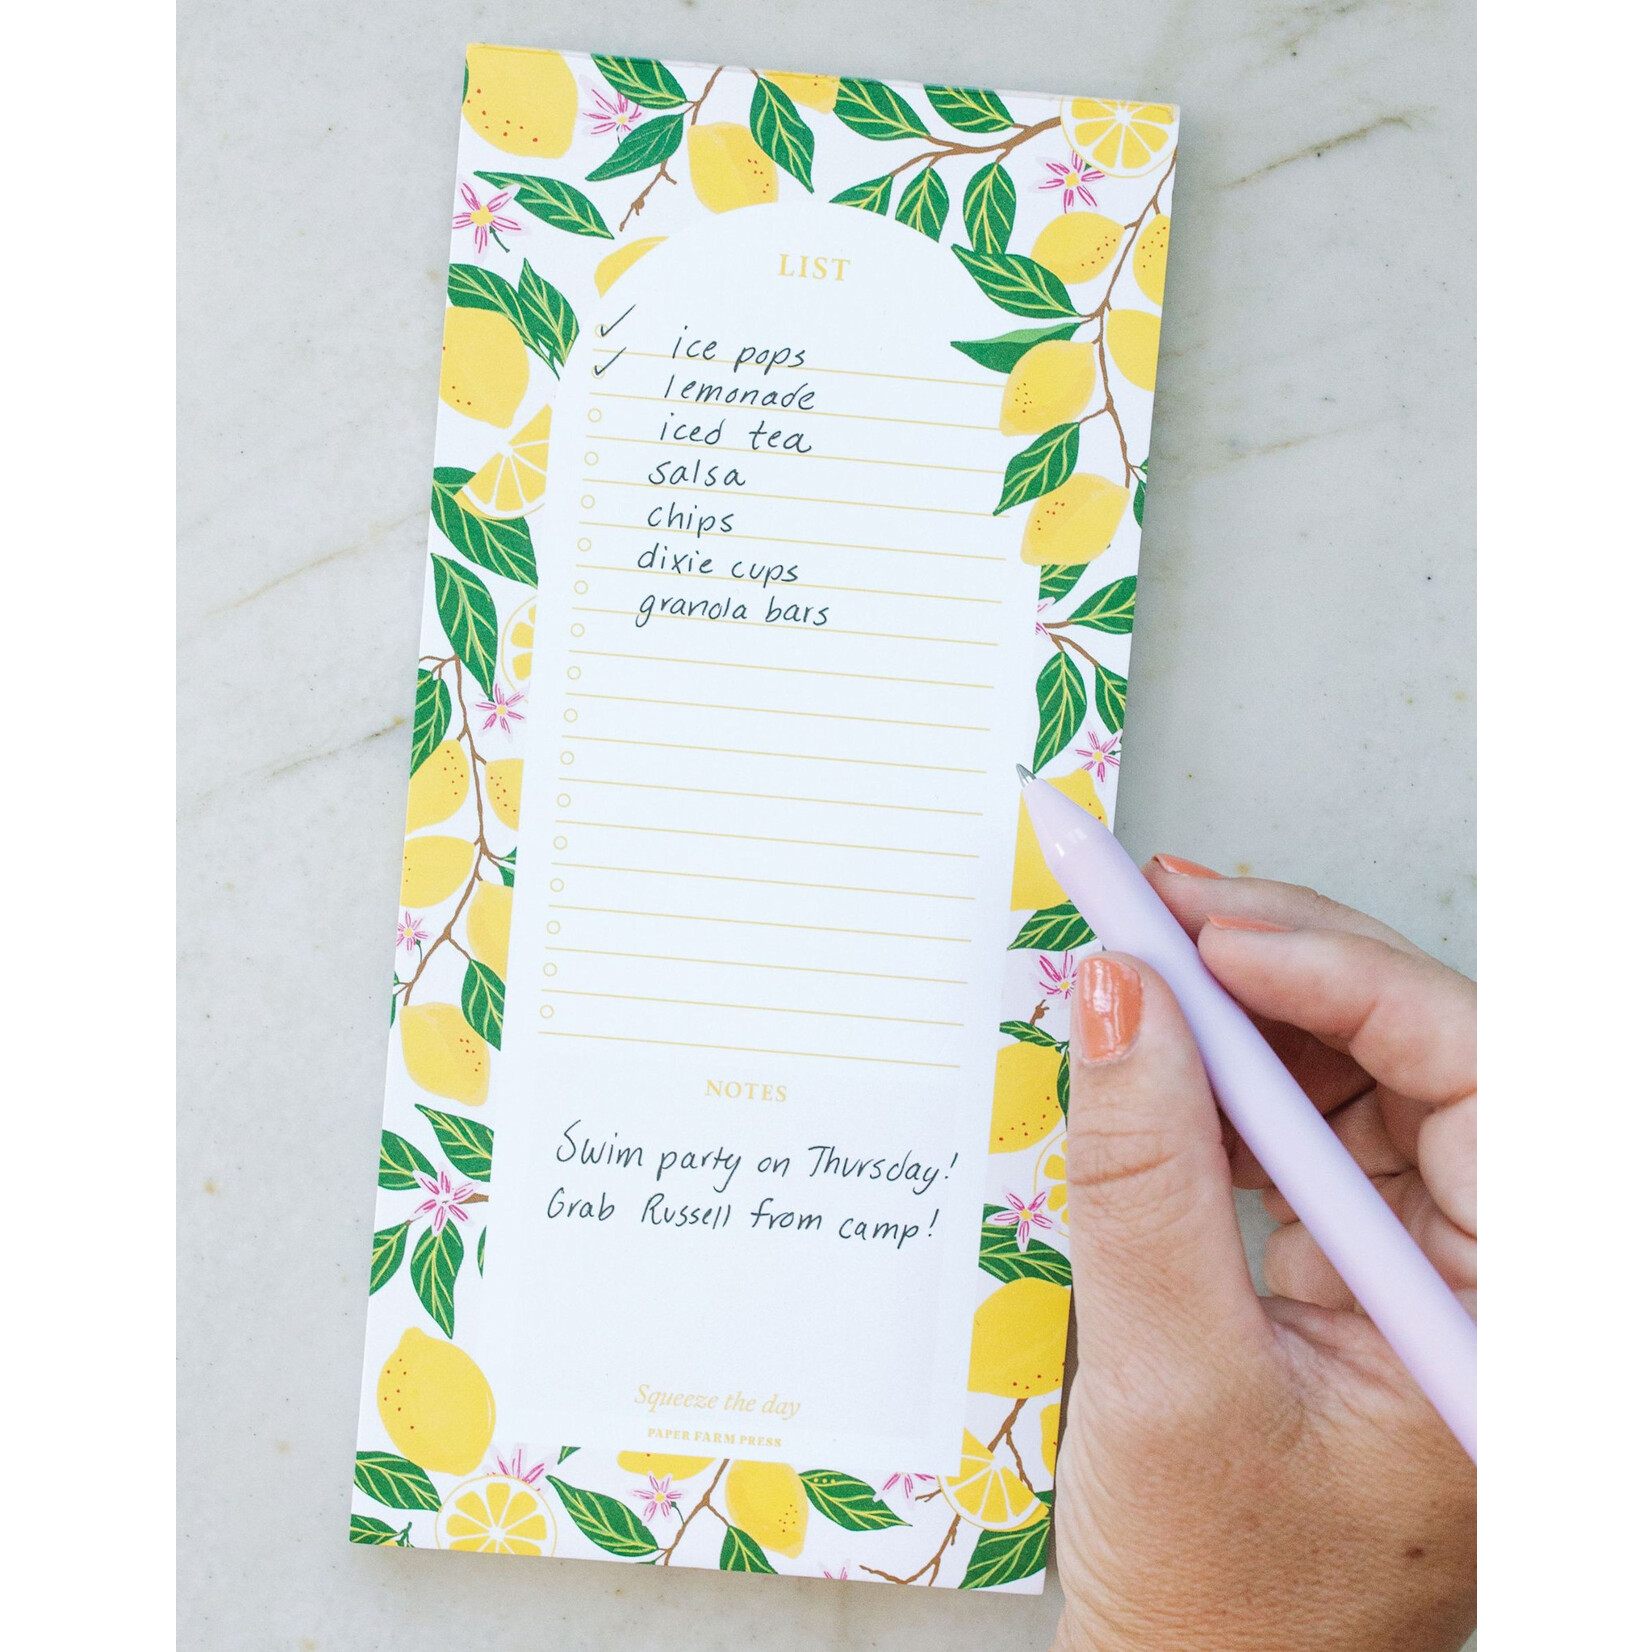 LIST
✓ ice pops
✓ lemonade
iced tea
salsa
chips
dixie cups
granola bars
NOTES
Swim party on Thursday!
Grab Russell from camp!
Squeeze the day
PAPER FARM PRESS